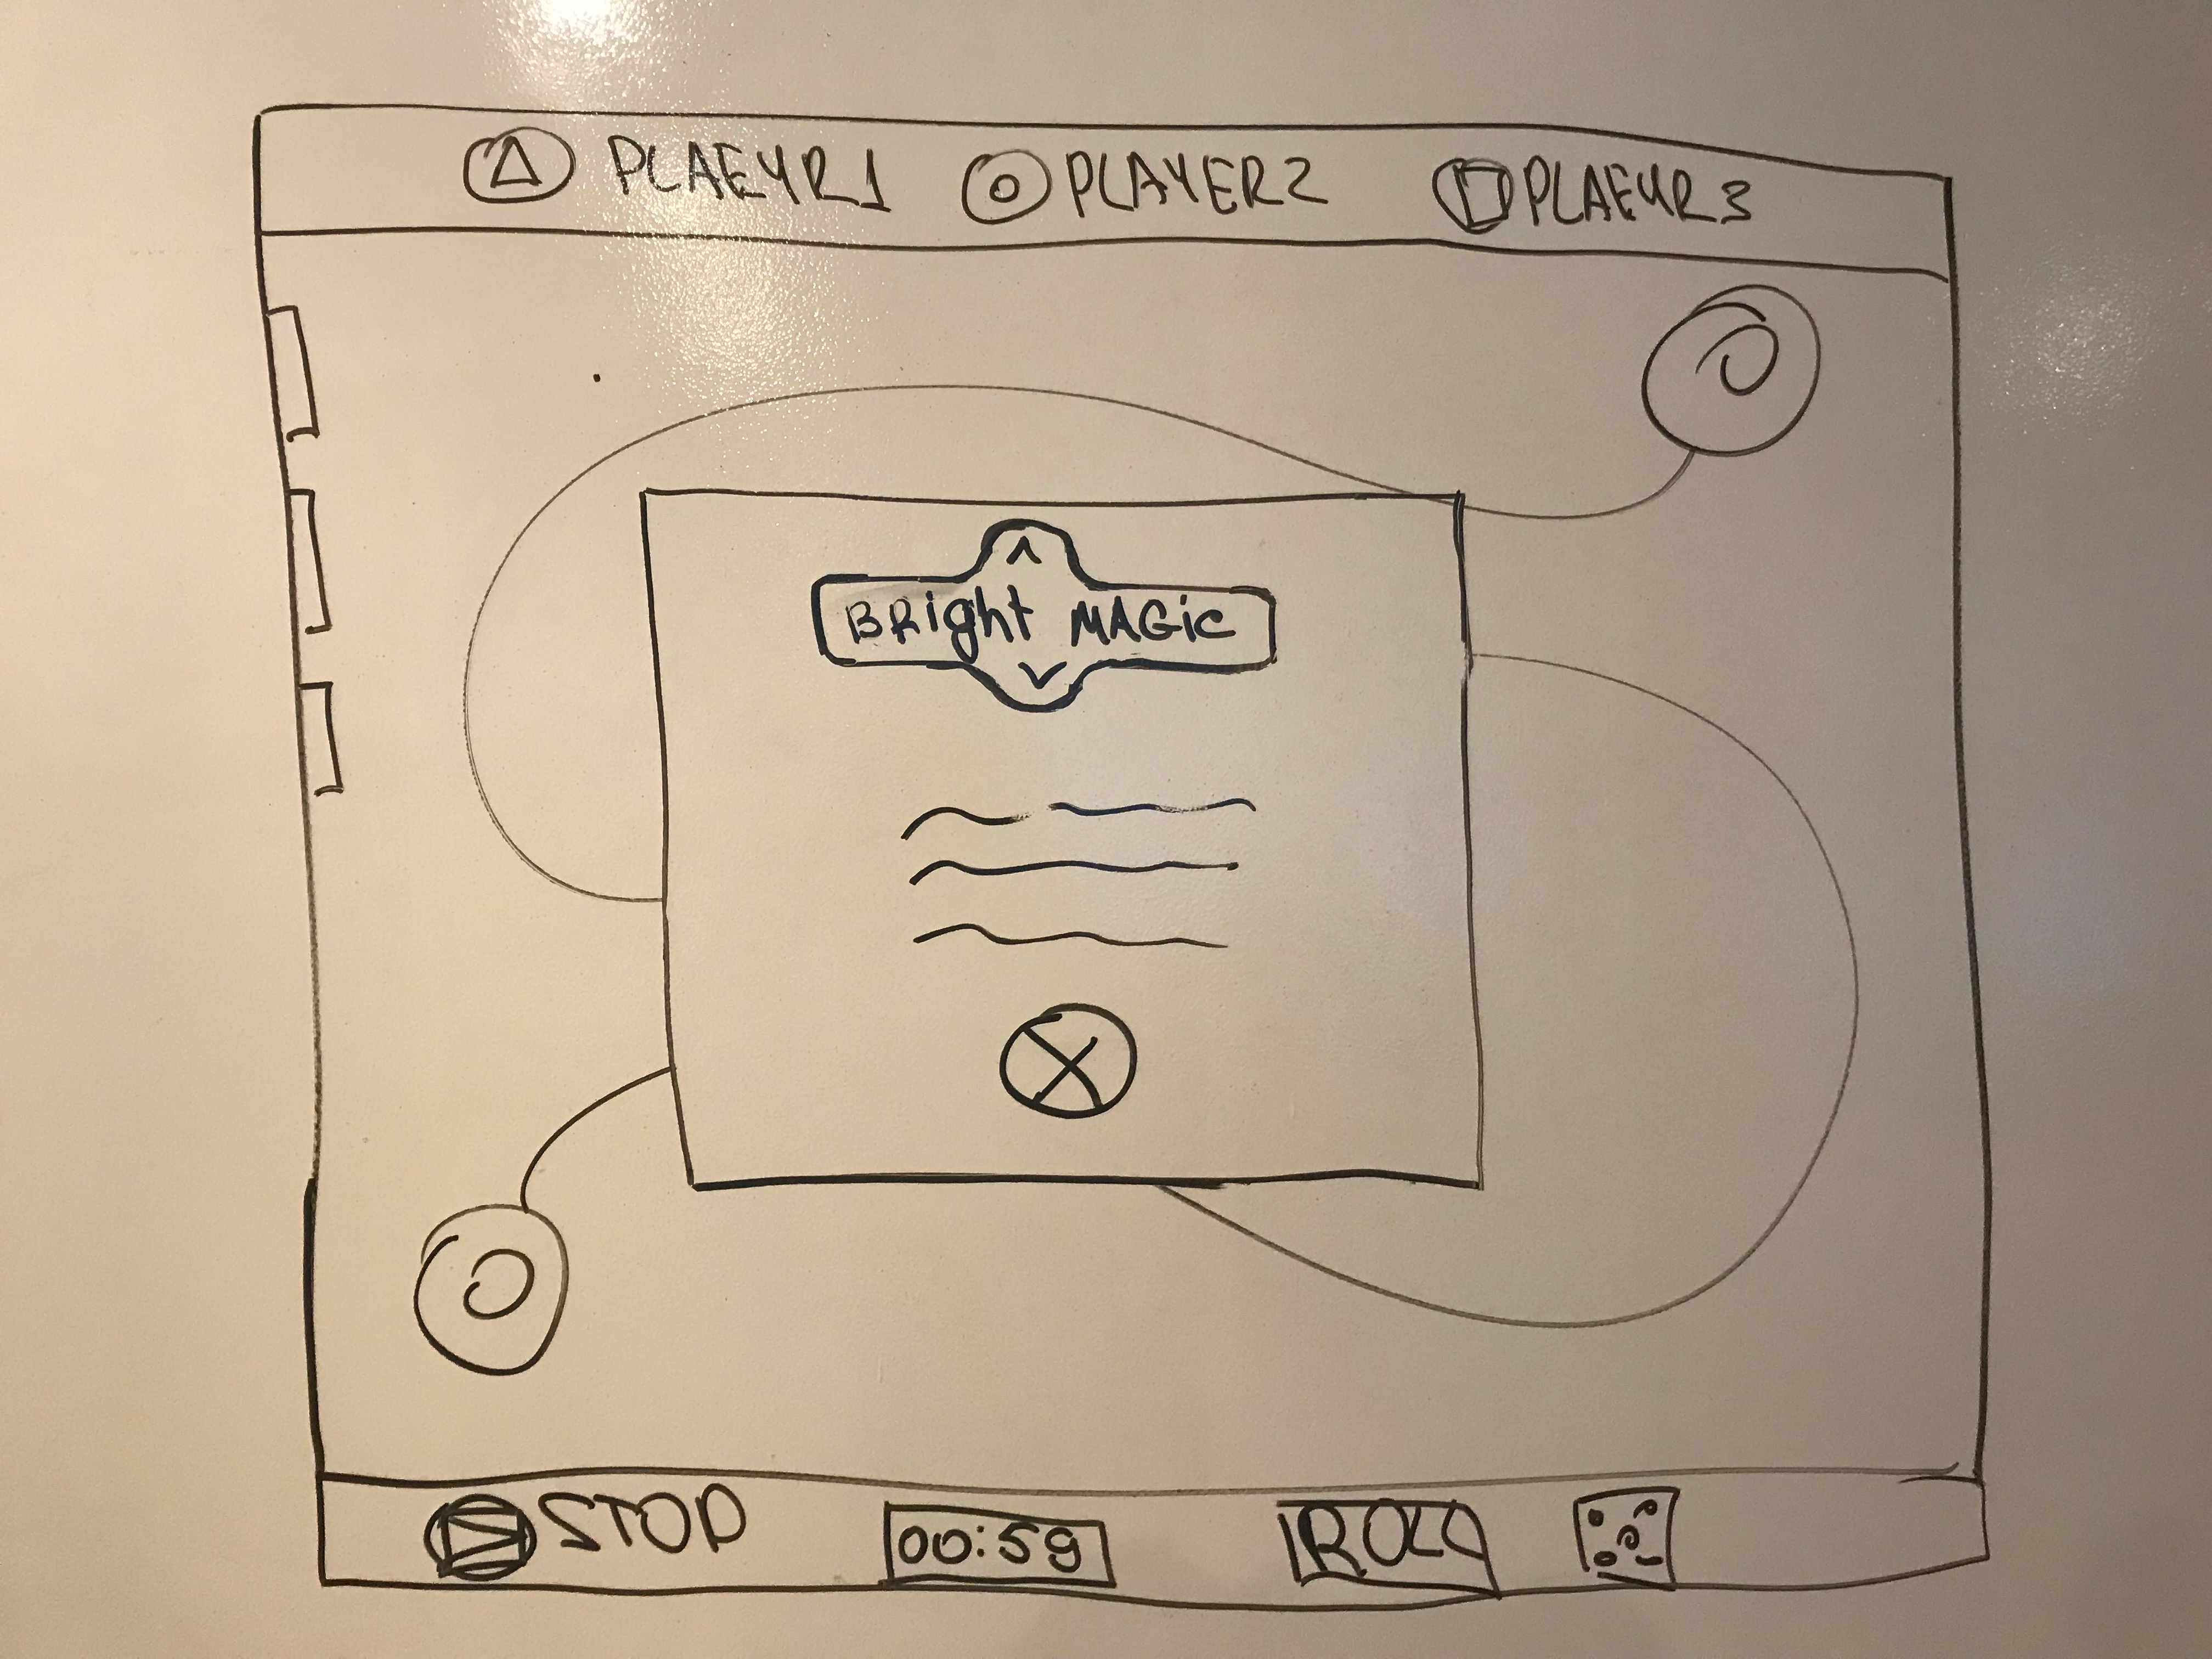 PLAEYR1 PLAYER2 PLAEYR3
BRight MAGic
STOP 00:59 ROLL